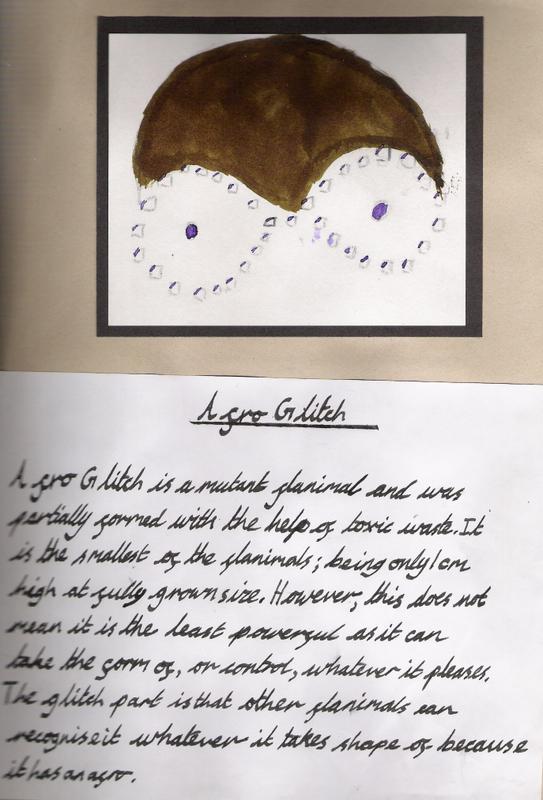 Afro Glitch
Afro Glitch is a mutant flanimal and was
partially formed with the help of toxic waste. It
is the smallest of the flanimals; being only 1cm
high at fully grown size. However, this does not
mean it is the least powerful as it can
take the form of, or control, whatever it pleases.
The glitch part is that other flanimals can
recognise it whatever it takes shape of because
it has an afro.